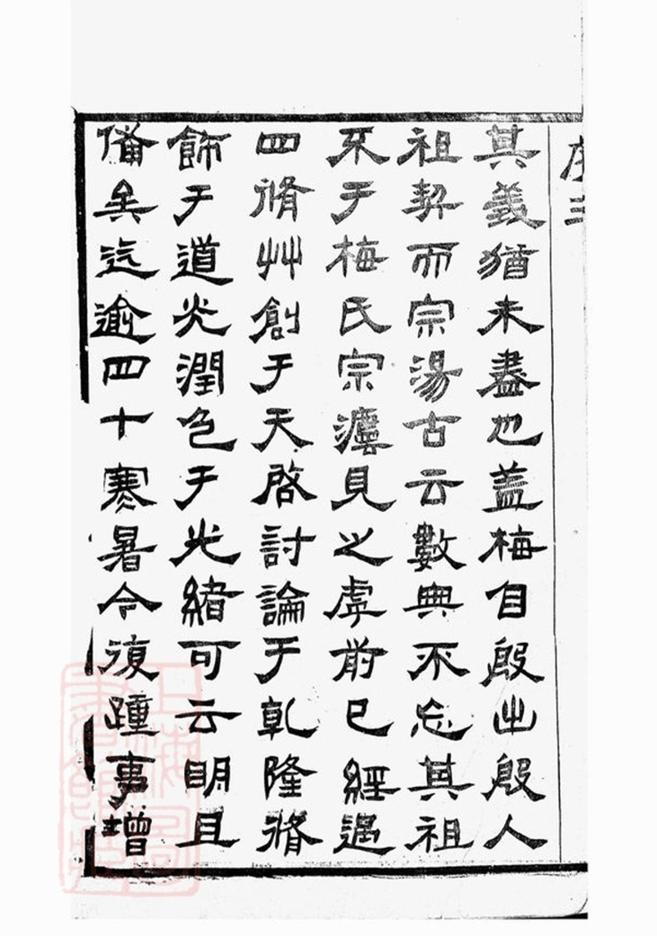 序三
其義猶未盡也蓋梅自殷出殷人
祖契而宗湯古云數典不忘其祖
于梅氏宗灋見之虖前已經過
四脩艸創于天啓討論于乾隆脩
飾于道光潤色于光緒可云明且
備矣迄逾四十寒暑今復踵事增